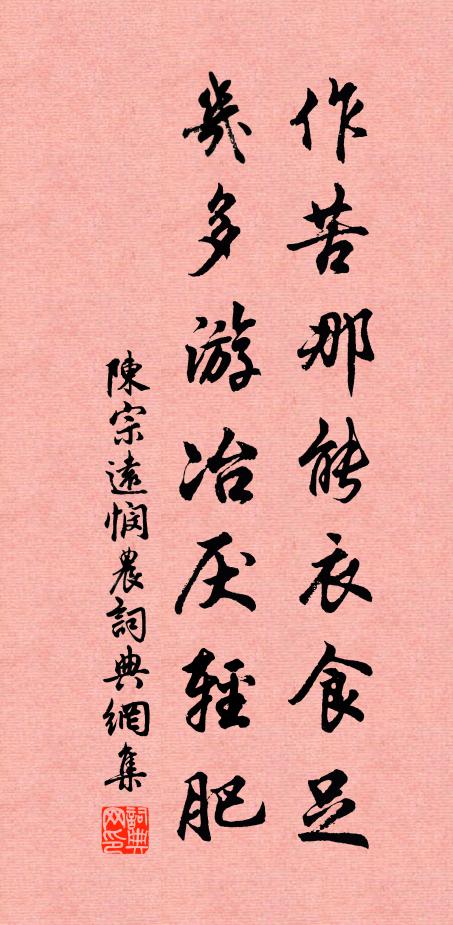 作苦那能衣食足
幾多游冶厌輕肥
陳宗遠憫農詞典網集
詞典网印